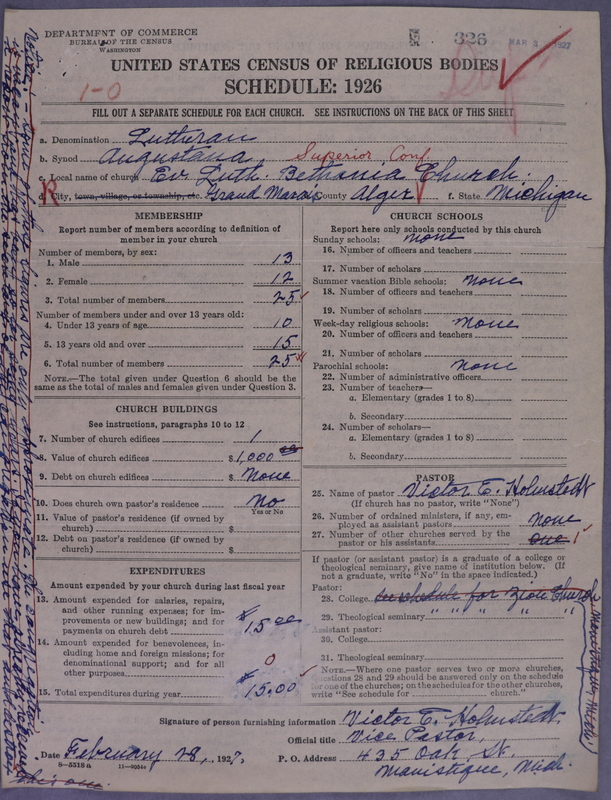 DEPARTMENT OF COMMERCE
BUREAU OF THE CENSUS
WASHINGTON
326
MAR 3 1927
1-0
UNITED STATES CENSUS OF RELIGIOUS BODIES
SCHEDULE: 1926
FILL OUT A SEPARATE SCHEDULE FOR EACH CHURCH. SEE INSTRUCTIONS ON THE BACK OF THIS SHEET
a. Denomination Lutheran
b. Synod Augustana Superior Conf.
c. Local name of church Ev. Luth. Bethania Church.
d. City, town, village, or township, etc. Grand Marais County Alger f. State Michigan
MEMBERSHIP
Report number of members according to definition of
member in your church
Number of members, by sex:
1. Male 13
2. Female 12
3. Total number of members 25
Number of members under and over 13 years old:
4. Under 13 years of age 10
5. 13 years old and over 15
6. Total number of members 25
NOTE.—The total given under Question 6 should be the
same as the total of males and females given under Question 3.
CHURCH BUILDINGS
See instructions, paragraphs 10 to 12
7. Number of church edifices 1
8. Value of church edifices $1,000 00
9. Debt on church edifices $ None
10. Does church own pastor's residence No
Yes or No
11. Value of pastor's residence (if owned by
church) $
12. Debt on pastor's residence (if owned by
church) $
EXPENDITURES
Amount expended by your church during last fiscal year
13. Amount expended for salaries, repairs,
and other running expenses; for im-
provements or new building; and for
payments on church debt $15.00
14. Amount expended for benevolences, in-
cluding home and foreign missions; for
denominational support; and for all
other purposes 0
15. Total expenditures during year $15.00
CHURCH SCHOOLS
Report here only schools conducted by this church
Sunday schools: None
16. Number of officers and teachers
17. Number of scholars
Summer vacation Bible schools: None
18. Number of officers and teachers
19. Number of scholars
Week-day religious schools: None
20. Number of officers and teachers
21. Number of scholars
Parochial schools: None
22. Number of administrative officers
23. Number of teachers—
a. Elementary (grades 1 to 8)
b. Secondary
24. Number of scholars—
a. Elementary (grades 1 to 8)
b. Secondary
PASTOR
25. Name of pastor Victor E. Holmstedt
(If church has no pastor, write "None")
26. Number of ordained ministers, if any, em-
ployed as assistant pastors none
27. Number of other churches served by the
pastor or his assistants one 1
If pastor (or assistant pastor) is a graduate of a college or
theological seminary, give name of institution below. (If
not a graduate, write "No" in the space indicated.)
Pastor:
28. College See schedule for Zion Church
29. Theological seminary " " " " "
Assistant pastor:
30. College
31. Theological seminary
NOTE.—Where one pastor serves two or more churches,
Questions 28 and 29 should be answered only on the schedule
for one of the churches; on the schedules for the other churches,
write "See schedule for church."
Signature of person furnishing information Victor E. Holmstedt
Official title Vice Pastor,
Date February 28, 1927.
P. O. Address 435 Oak St.
Manistique, Mich.
8-5519a
this one.